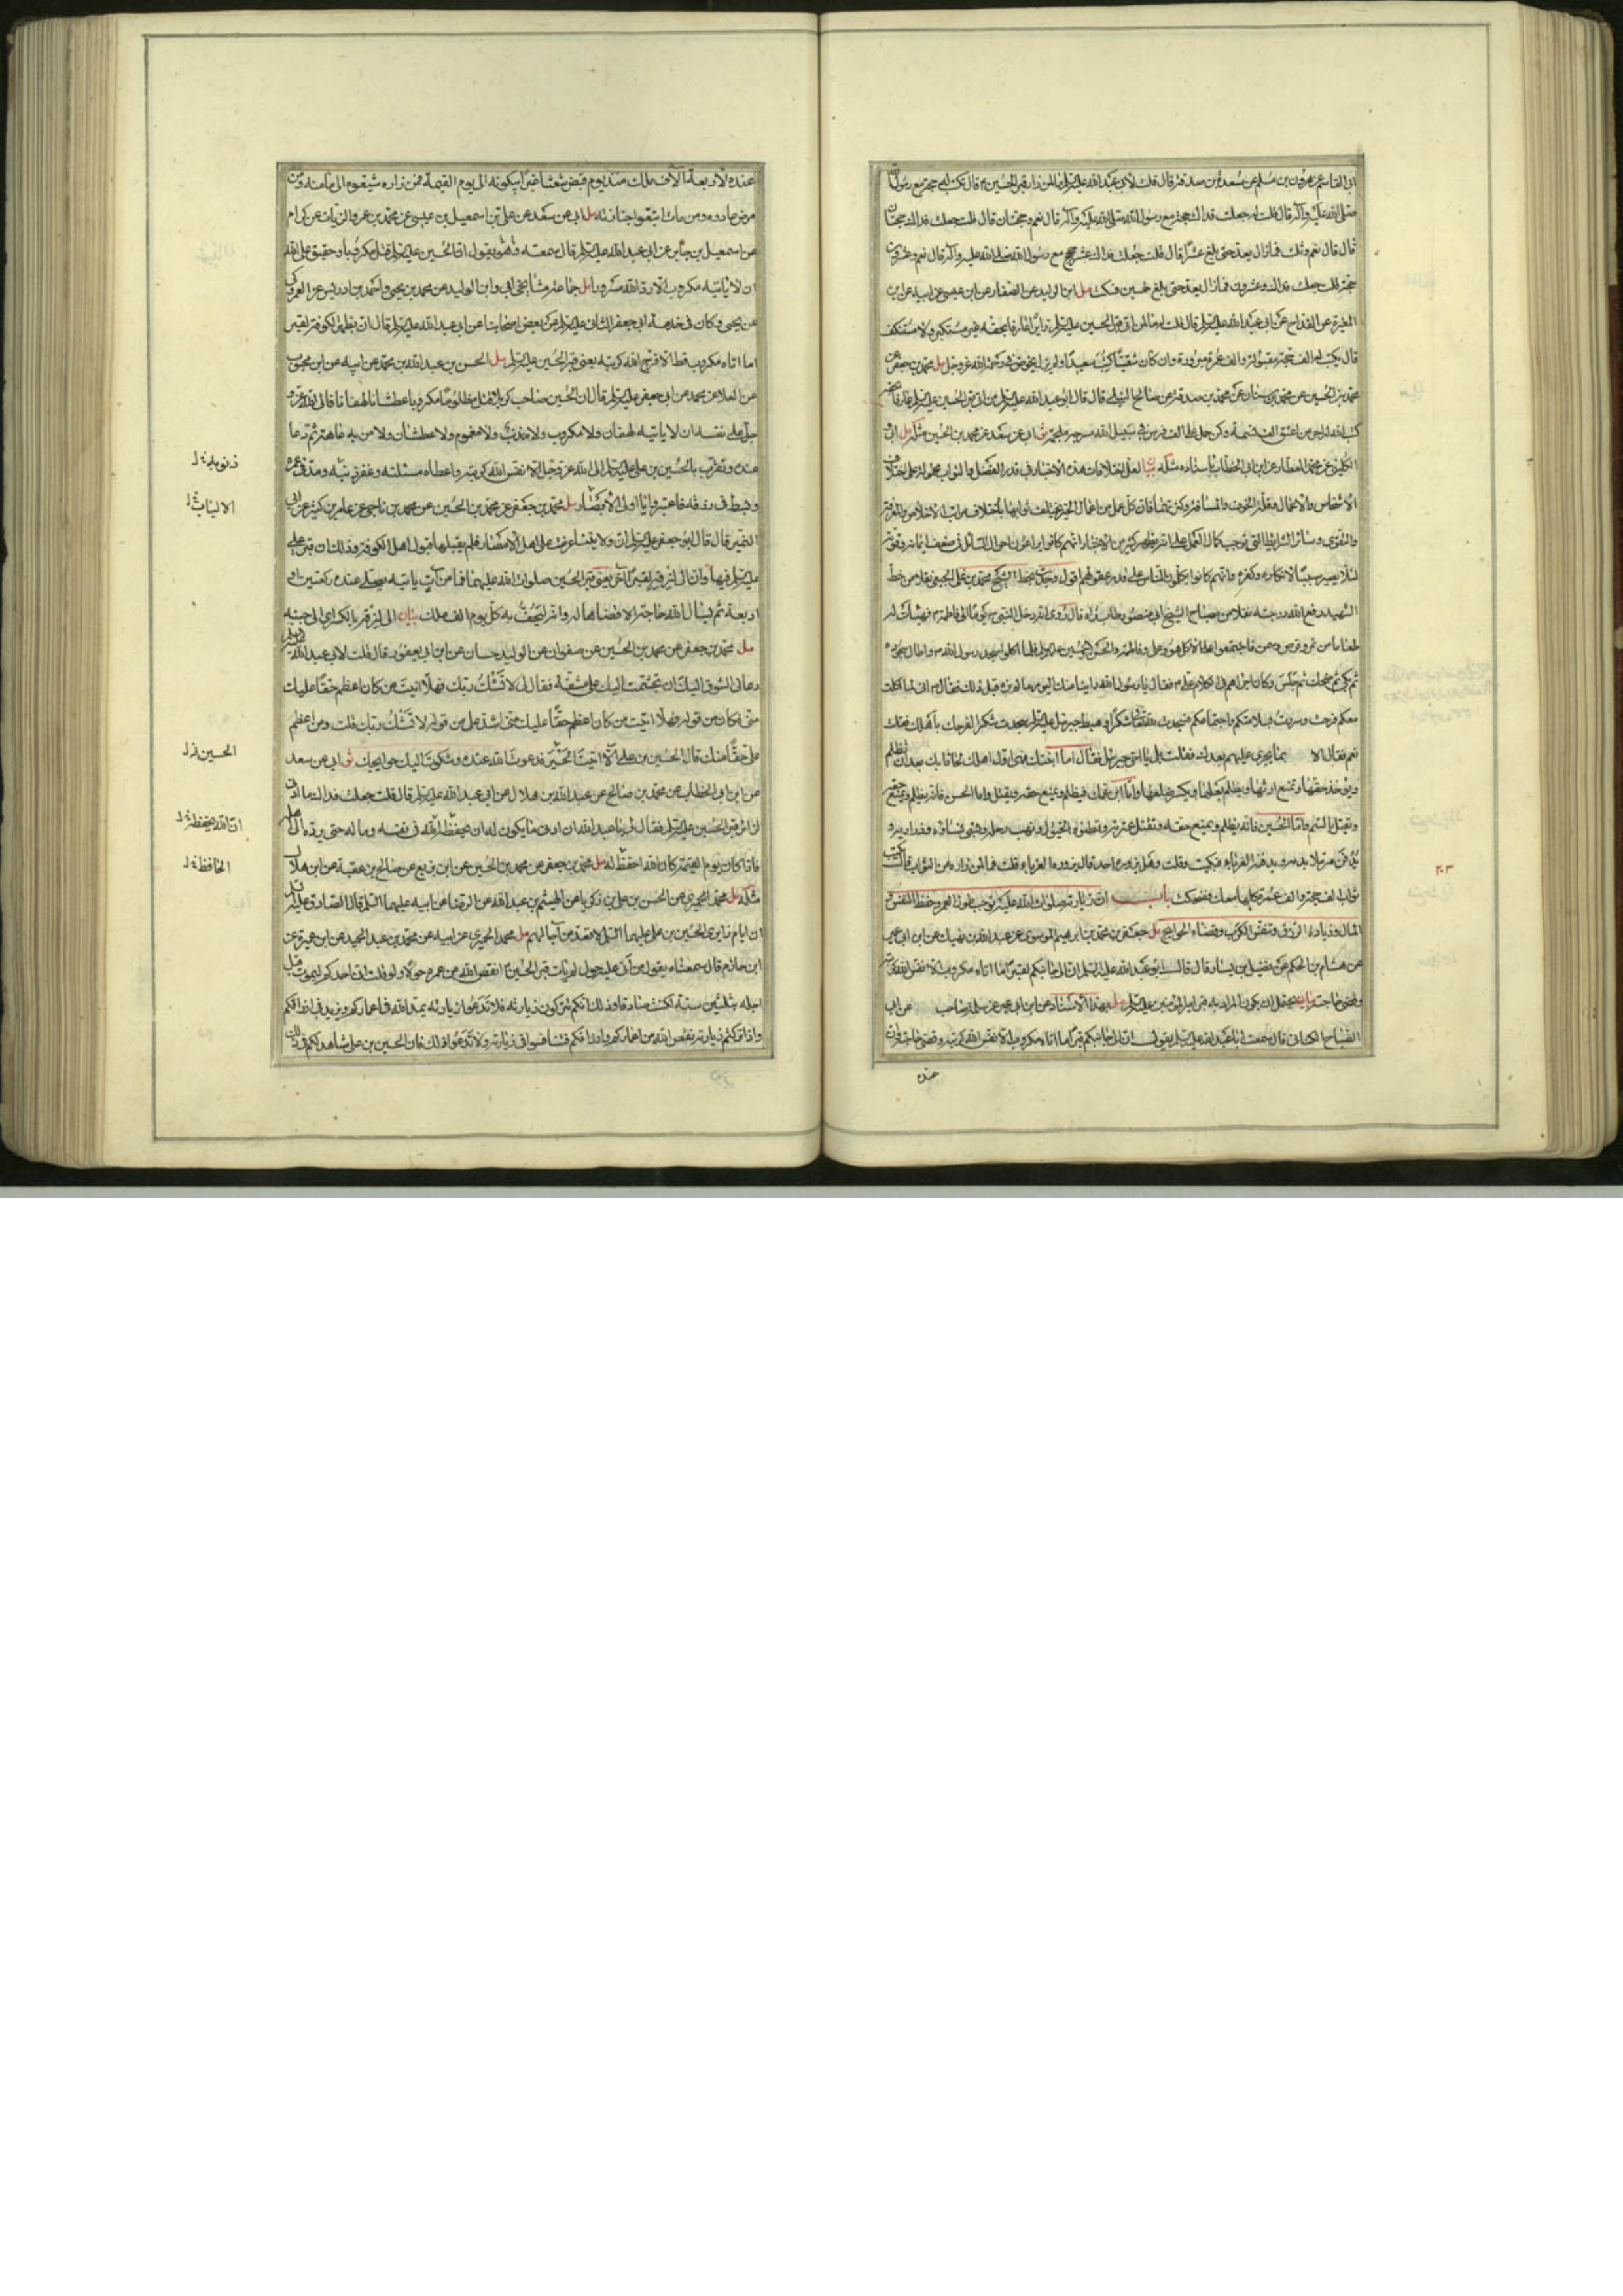 ابى القاسم عن هرون بن مسلم عن مسعدة بن صدقة قال قلت لأبي عبد الله عليه السلم ما لمن زار قبر الحسين ع قال تكتب له حجة مع رسول الله
صلى الله عليه وآله قال قلت له جعلت فداك حجة مع رسول الله صلى الله عليه وآله قال نعم وحجتان قال قلت جعلت فداك حجتان
قال قال نعم وثلث فما زال يعد حتى بلغ عشرا قال قلت جعلت فداك عشر حجج مع رسول الله صلى الله عليه وآله قال نعم وعشرون
حجة قلت جعلت فداك وعشرون فما زال يعد حتى بلغ خمسين فسكت مل ابن الوليد عن الصفار عن ابن عيسى عن ابيه عن ابن
المغيرة عن القداح عن ابى عبد الله عليه السلم قال قلت له ما لمن اتى قبر الحسين عليه السلم زايرا عارفا بحقه غير مستكبر ولا مستنكف
قال يكتب له الف حجة مقبولة والف عمرة مبرورة وان كان شقيا كتب سعيدا ولم يزل يخوض في رحمة الله عز وجل مل محمد بن جعفر عن
محمد بن الحسين عن محمد بن سنان عن محمد بن صدقة عن صالح النيلي قال قال ابو عبد الله عليه السلم من اتى قبر الحسين عليه السلم عارفا بحقه
كتب الله له اجر من اعتق الف نسمة وكمن حمل على الف فرس في سبيل الله مسرجة ملجمة ثو ابى عن سعد عن محمد بن الحسين مثله مل ابى و
الكليني عن محمد العطار عن ابن ابى الخطاب باسناده مثله بيان لعل اختلافات هذه الاخبار في قدر الفضل والثواب محمولة على اختلاف
الاشخاص والاعمال وقلة الخوف والمسافة وكثرتهما فان كل عمل من اعمال الخير يختلف ثوابها باختلاف مراتب الاخلاص والمعرفة
والتقوى وسائر الشرائط التي توجب كمال العمل على انه يظهر من كثير من الاخبار انهم كانوا يراعون احوال السائل في ضعف ايمانه وقوته
لئلا يصير سببا لانكاره وكفره وانهم كانوا يكلمون الناس على قدر عقولهم اقول وجدت بخط الشيخ محمد بن علي الجبعي نقلا من خط
الشهيد رفع الله درجته نقلا من مصباح الشيخ ابى منصور طاب ثراه قال روى انه دخل النبي ص يوما الى فاطمة ع فهيأت له
طعاما من تمر وقرص وسمن فاجتمعوا على الاكل هو وعلي وفاطمة والحسن والحسين عليهم السلم فلما اكلوا سجد رسول الله ص واطال سجوده
ثم بكى ثم ضحك ثم جلس وكان اجراهم في الكلام علي ع فقال يا رسول الله رأينا منك اليوم ما لم نره قبل ذلك فقال ص انى لما اكلت
معكم فرحت وسررت بسلامتكم واجتماعكم فسجدت لله تعالى شكرا فهبط جبرئيل عليه السلم يقول سجدت شكرا لفرحك باهلك فقلت
نعم فقال الا بما يجرى عليهم بعدك فقلت بلى يا اخى جبرئيل فقال اما ابنتك فهى اول اهلك لحاقا بك بعد ان تظلم
ويؤخذ حقها وتمنع ارثها ويظلم بعلها ويكسر ضلعها واما ابن عمك فيظلم ويمنع حقه ويقتل واما الحسن فانه يظلم ويمنع حقه
ويقتل بالسم واما الحسين فانه يظلم ويمنع حقه وتقتل عترته وتطؤه الخيول وينهب رحله وتسبى نساؤه وذراريه و
يدفن مرملا بدمه ويدفنه الغرباء فبكيت وقلت وهل يزوره احد قال يزوره الغرباء قلت فما لمن زاره من الثواب قال يكتب له
ثواب الف حجة والف عمرة كلها معك فضحكت باب ان زيارته صلوات الله عليه توجب طول العمر وحفظ النفس و
المال وزيادة الرزق وتنفس الكرب وقضاء الحوائج مل جعفر بن محمد بن ابرهيم الموسوي عن عبد الله بن نهيك عن ابن ابى عمير
عن هشام بن الحكم عن فضيل بن يسار قال قال ابو عبد الله عليه السلم ان الى جانبكم لقبرا ما اتاه مكروب الا نفس الله كربته
وقضى حاجته بيان يحتمل ان يكون المراد به قبر امير المؤمنين عليه السلم مل بهذا الاسناد عن ابن ابى عمير عن سلمة صاحب عن ابى
الصباح الكناني قال سمعت ابا عبد الله عليه السلم يقول ان الى جانبكم قبرا ما اتاه مكروب الا نفس الله كربته وقضى حاجته وان
عنده
٢٠٣
عنده لاربعة آلاف ملك منذ يوم قبض شعثا غبرا يبكونه الى يوم القيمة فمن زاره شيعوه الى مأمنه ومن
مرض عادوه ومن مات اتبعوا جنازته مل ابى عن سعد عن علي بن اسمعيل بن عيسى عن محمد بن عمرو الزيات عن كرام
عن اسمعيل بن جابر عن ابى عبد الله عليه السلم قال سمعته وهو يقول ان الحسين عليه السلم قتل مكروبا وحقيق على الله
ان لا ياتيه مكروب الا رده الله مسرورا مل جماعة مشايخى ابى وابن الوليد عن محمد بن يحيى واحمد بن ادريس عن العمركي
عن يحيى وكان في خدمة ابى جعفر الثاني عليه السلم عن بعض اصحابنا عن ابى عبد الله عليه السلم قال ان بظهر الكوفة لقبر
اما اتاه مكروب قط الا فرج الله كربته يعنى قبر الحسين عليه السلم مل الحسن بن عبد الله بن محمد عن ابيه عن ابن محبوب
عن العلا عن محمد عن ابى جعفر عليه السلم قال ان الحسين صاحب كربلا قتل مظلوما مكروبا عطشانا لهفانا فالى الله عز و
جل على نفسه ان لا ياتيه لهفان ولا مكروب ولا مذنب ولا مغموم ولا عطشان ولا من به عاهة ثم دعا
عنده وتقرب بالحسين بن علي عليه السلم الى الله عز وجل الا نفس الله كربته واعطاه مسئلته وغفر ذنبه ومد في عمره
وبسط في رزقه فاعتبروا يا اولى الابصار مل محمد بن جعفر عن محمد بن الحسين عن محمد بن ناجى عن عامر بن كثير عن ابى
النمير قال قال ابو جعفر عليه السلم ان ولايتنا عرضت على اهل الامصار فلم يقبلها قبول اهل الكوفة وذلك ان قبر علي
عليه السلم فيها وان الى لزقه لقبرا آخر يعنى قبر الحسين صلوات الله عليهما فما من آت ياتيه يصلى عنده ركعتين او
اربعة ثم يسأل الله حاجته الا قضاها له وانه ليحف به كل يوم الف ملك بيان الى لزقه بالكسر اى الى جنبه
مل محمد بن جعفر عن محمد بن الحسين عن صفوان عن الوليد حسان عن ابن ابى يعفور قال قلت لابى عبد الله عليه السلم
دعانى الشوق اليك ان تجشمت اليك على مشقة فقال لى لا تشك ربك فهلا اتيت من كان اعظم حقا عليك
منى فكان من قوله فهلا اتيت من كان اعظم حقا عليك منى اشد على من قوله لا تشك ربك قلت ومن اعظم
على حقا منك قال الحسين بن علي ع الا اتيت الحسين فدعوت الله عنده وشكوت اليك حوايجك ثو ابى عن سعد
عن ابن ابى الخطاب عن محمد بن صالح عن عبد الله بن هلال عن ابى عبد الله عليه السلم قال قلت جعلت فداك ما ادنى
لزائر قبر الحسين عليه السلم فقال لى يا عبد الله ان ادنى ما يكون له ان يحفظ الله في نفسه وماله حتى يرده الى اهله
فاذا كان يوم القيمة كان الله احفظ له مل محمد بن جعفر عن محمد بن الحسين عن ابن بزيع عن صالح بن عقبة عن ابن هلال
مثله مل محمد الحميري عن الحسن بن علي بن زكريا عن الهيثم بن عبد الله عن الرضا عن ابيه عليهما السلم قال قال الصادق عليه السلم
ان ايام زايرى الحسين بن علي عليهما السلم لا تعد من آجالهم مل محمد الحميري عن ابيه عن محمد بن عبد الحميد عن ابن عميرة عن
ابن حازم قال سمعناه يقول من اتى عليه حول لم يأت قبر الحسين ع انقص الله من عمره حولا ولو قلت ان احدكم ليموت قبل
اجله بثلثين سنة لكنت صادقا وذلك انكم تتركون زيارته فلا تدعوا زيارته يمد الله في اعماركم ويزيد في ارزاقكم
واذا تركتم زيارته نقص الله من اعماركم وارزاقكم فتنافسوا في زيارته ولا تدعوا ذلك فان الحسين بن علي شاهد لكم في ذلك
ذنوبه
الالباب
الحسين
ان الله يحفظه
الحافظ